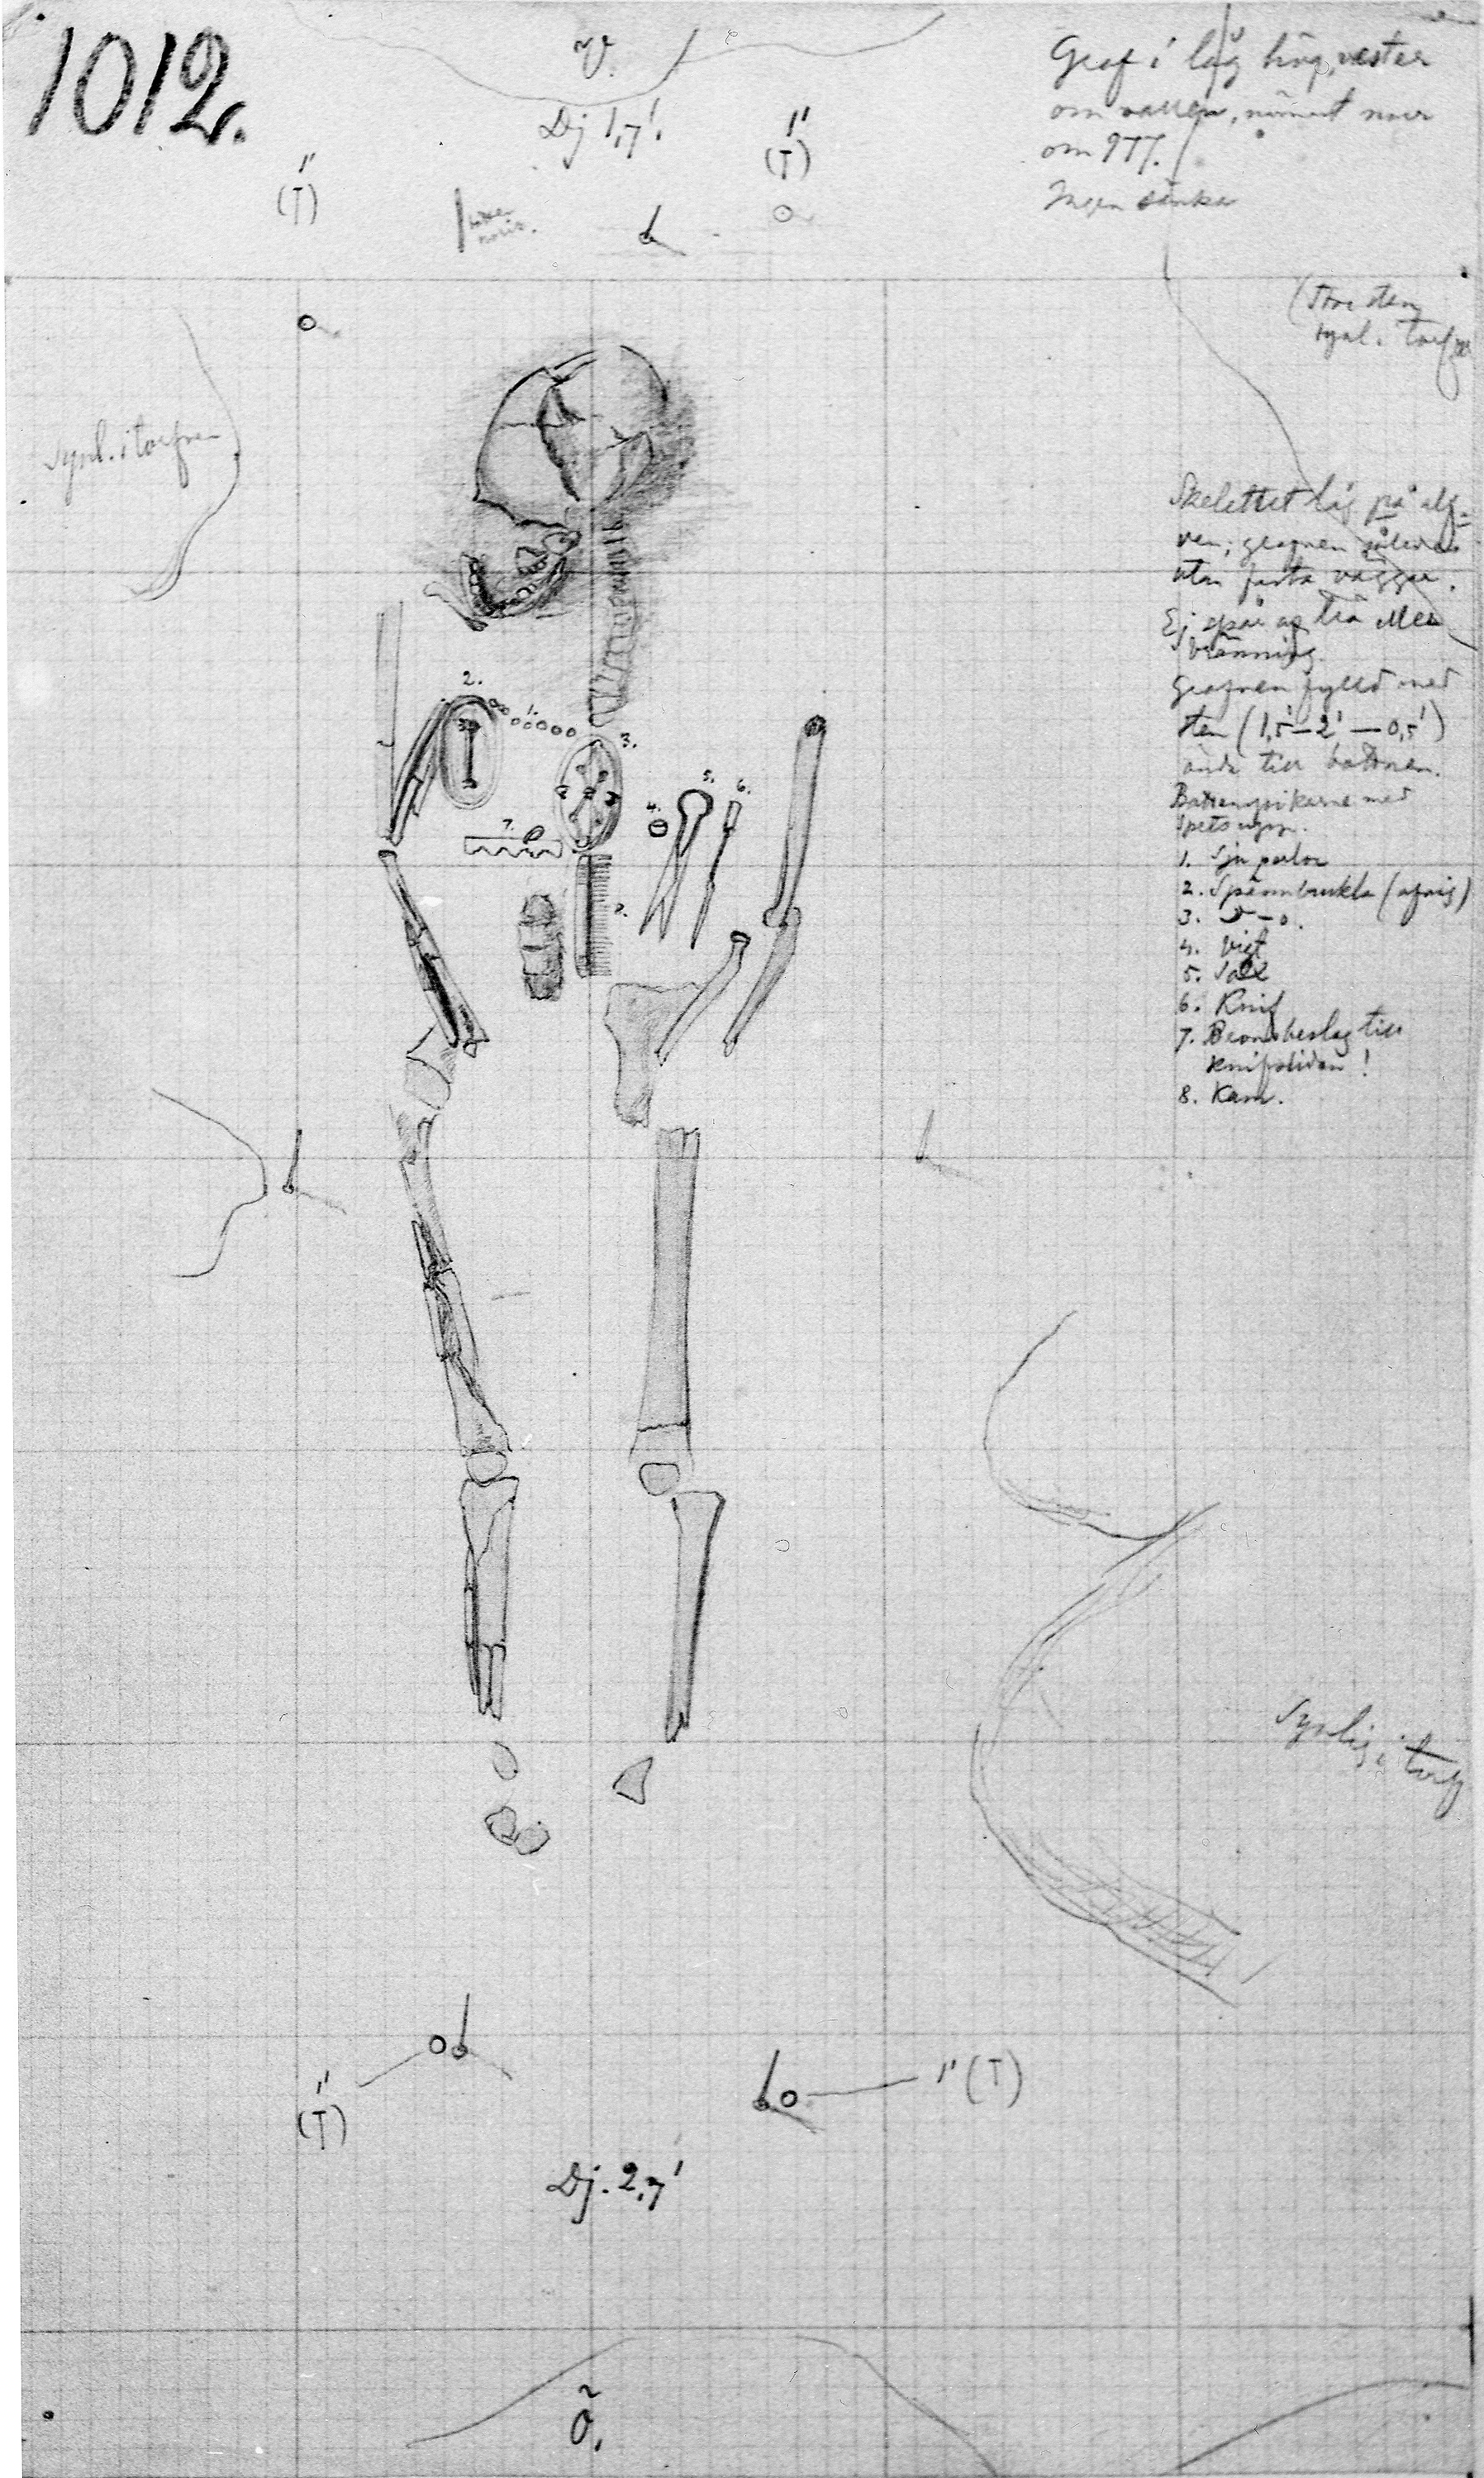 1012.
V.
Dj 1,7'.
1"
(T)
1"
(T)
Graf i låg hög, vester
om vallen, närmast norr
om 977.
Ingen sänka
(Stor sten
synl. i torfven
Synl. i torfven
Skelettet låg på alf-
ven; grafven således
utan fasta väggar.
Ej spår af trä eller
bränning.
Grafven fylld med
sten (1,5'–2'–0,5')
ända till bottnen.
med
1. Sju perlor
2. Spännbuckla (afvig)
3. D–o.
4.
5. Sax
6. Knif
7. Bronsbeslag till
knifslidan!
8. Kam.
2.
1.
3.
4.
5.
6.
7.
8.
Synlig i torfv
1"
(T)
1" (T)
Dj. 2,7'
Ö.